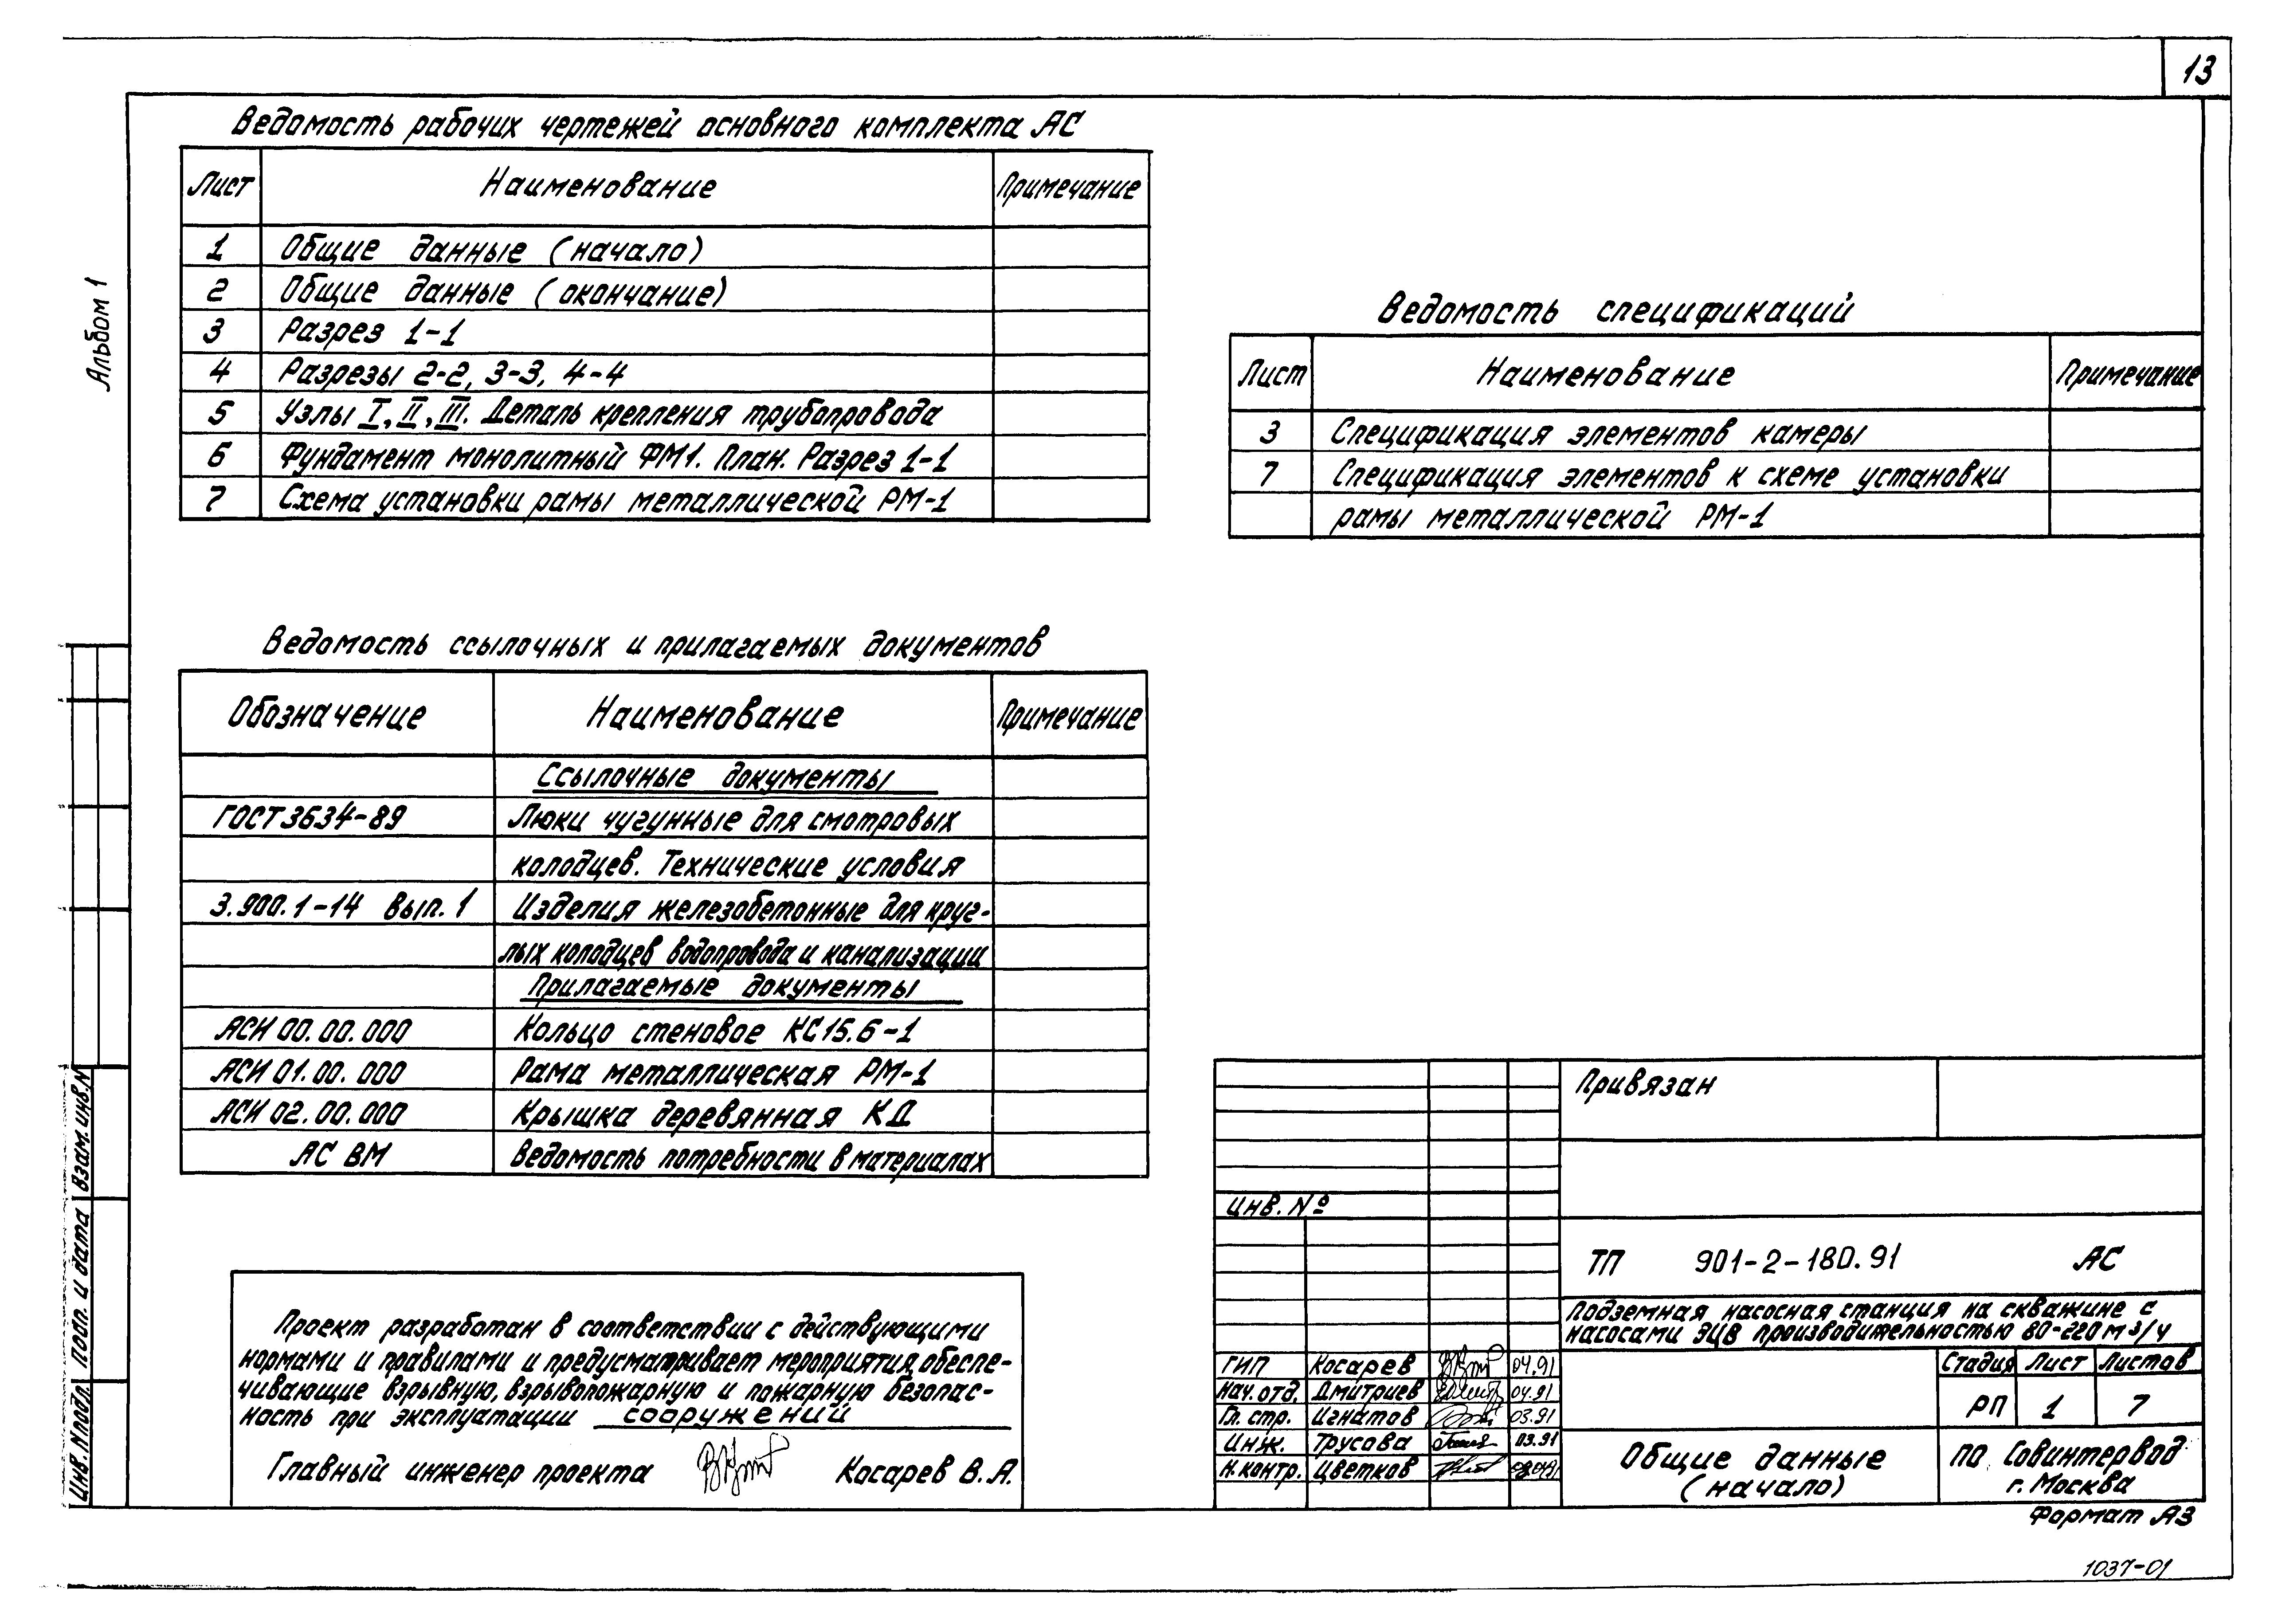 13
Альбом 1
Ведомость рабочих чертежей основного комплекта АС
Лист Наименование Примечание
1 Общие данные (начало)
2 Общие данные (окончание)
3 Разрез 1-1
4 Разрезы 2-2, 3-3, 4-4
5 Узлы I, II, III. Деталь крепления трубопровода
6 Фундамент монолитный ФМ1. План. Разрез 1-1
7 Схема установки рамы металлической РМ-1
Ведомость спецификаций
Лист Наименование Примечание
3 Спецификация элементов камеры
7 Спецификация элементов к схеме установки
рамы металлической РМ-1
Ведомость ссылочных и прилагаемых документов
Обозначение Наименование Примечание
Ссылочные документы
ГОСТ 3634-89 Люки чугунные для смотровых
колодцев. Технические условия
3.900.1-14 Вып. 1 Изделия железобетонные для круг-
лых колодцев водопровода и канализации
Прилагаемые документы
АСИ 00.00.000 Кольцо стеновое КС15.6-1
АСИ 01.00.000 Рама металлическая РМ-1
АСИ 02.00.000 Крышка деревянная КД
АС ВМ Ведомость потребности в материалах
Проект разработан в соответствии с действующими
нормами и правилами и предусматривает мероприятия, обеспе-
чивающие взрывную, взрывопожарную и пожарную безопас-
ность при эксплуатации сооружений
Главный инженер проекта Косарев В.А.
Инв. N подл. Подп. и дата Взам. инв. N
Привязан
Инв. №
ТП 901-2-180.91 АС
Подземная насосная станция на скважине с
насосами ЭЦВ производительностью 80-220 м3/ч
ГИП Косарев 04.91
Нач. отд. Дмитриев 04.91
Гл. стр. Игнатов 03.91
Инж. Трусова 03.91
Н. контр. Цветков
Стадия Лист Листов
РП 1 7
Общие данные
(начало)
ПО Совинтервод
г. Москва
Формат А3
1037-01